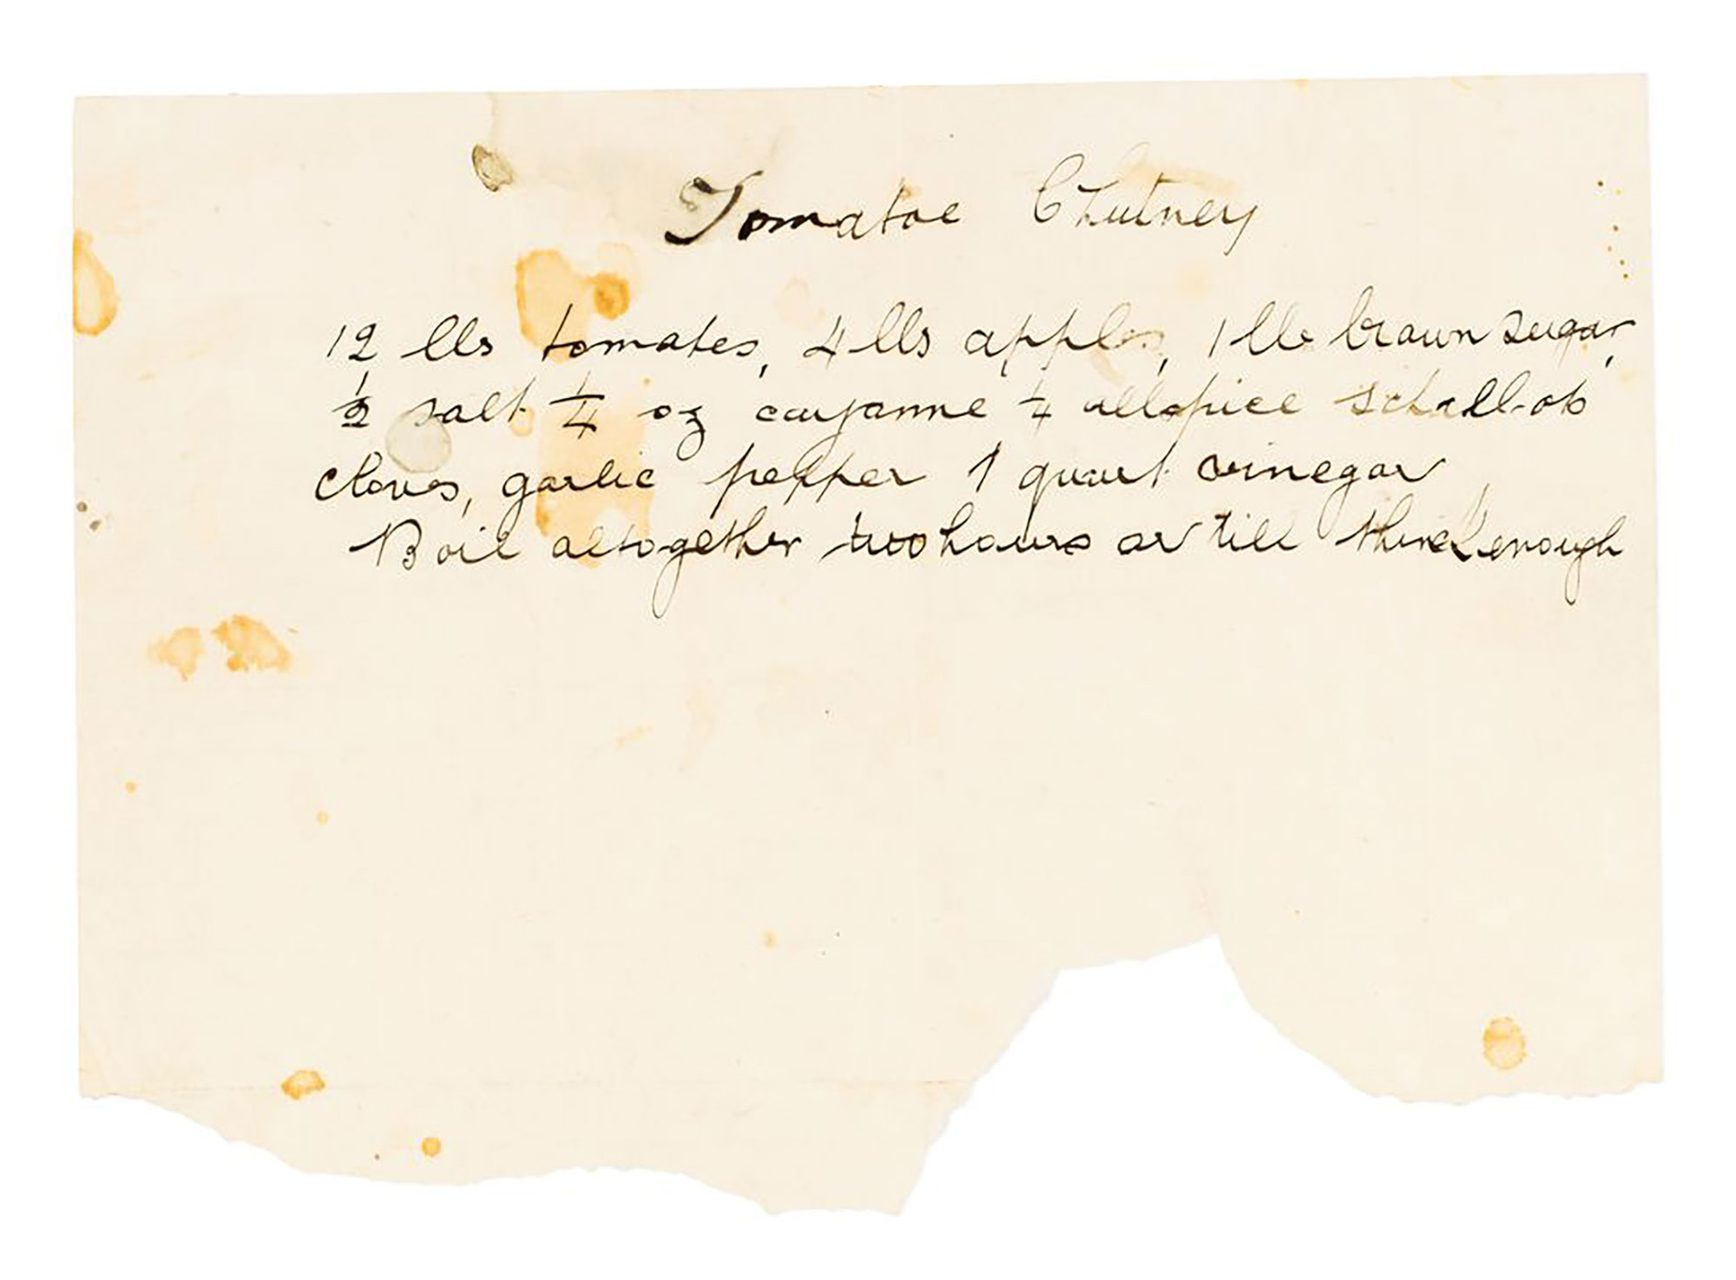 Tomatoe Chutney
12 lbs tomates, 4 lbs apples, 1 lb brown sugar,
½ salt ¼ oz cayanne ¼ allspice schallots
cloves, garlic pepper 1 quart vinegar
Boil altogether two hours or till thick enough